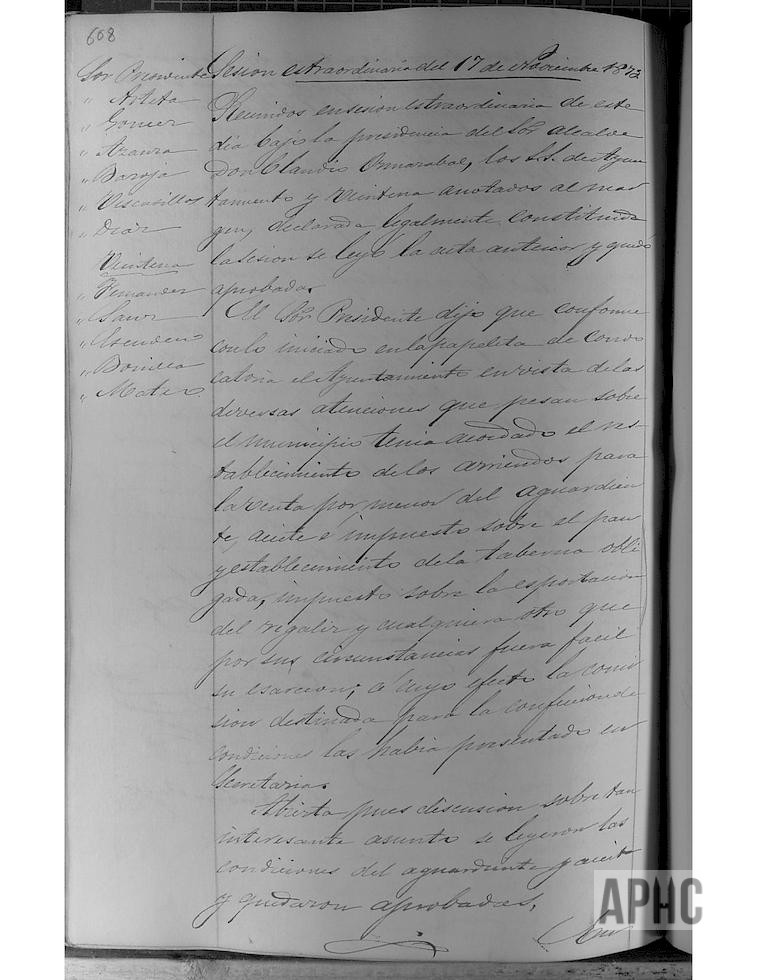 668
Sor Presidente
" Arteta
" Gomez
" Azanza
" Baroja
" Viscasillas
" Diaz
Veintena
" Fernandez
" Sanz
" Escudero
" Bonilla
" Mateo
Sesion estraordinaria del 17 de Noviembre 1872
Reunidos en sesion estraordinaria de este
dia bajo la presidencia del Sor alcalde
Don Claudio Ormazabal, los S.S. de Ayun
tamiento y Veintena anotados al mar
gen, declarada legalmente constituida
la sesion se leyó la acta anterior y quedó
aprobada.
El Sor Presidente dijo que conforme
con lo iniciado en la papeleta de convo
catoria el Ayuntamiento en vista de las
diversas atenciones que pesan sobre
el municipio tenia acordado el res-
tablecimiento de los arriendos para
la venta por menor del aguardien
te, aceite é impuesto sobre el pan
y establecimiento de la taberna obli
gada, impuesto sobre la esportacion
del regaliz y cualquiera otro que
por sus circunstancias fuera facil
su esaccion; á cuyo efecto la comi
sion destinada para la confeccion de
condiciones las habia presentado en
Secretaria.
Abierta pues discusion sobre tan
interesante asunto se leyeron las
condiciones del aguardiente y aceite
y quedaron aprobadas.
APHC